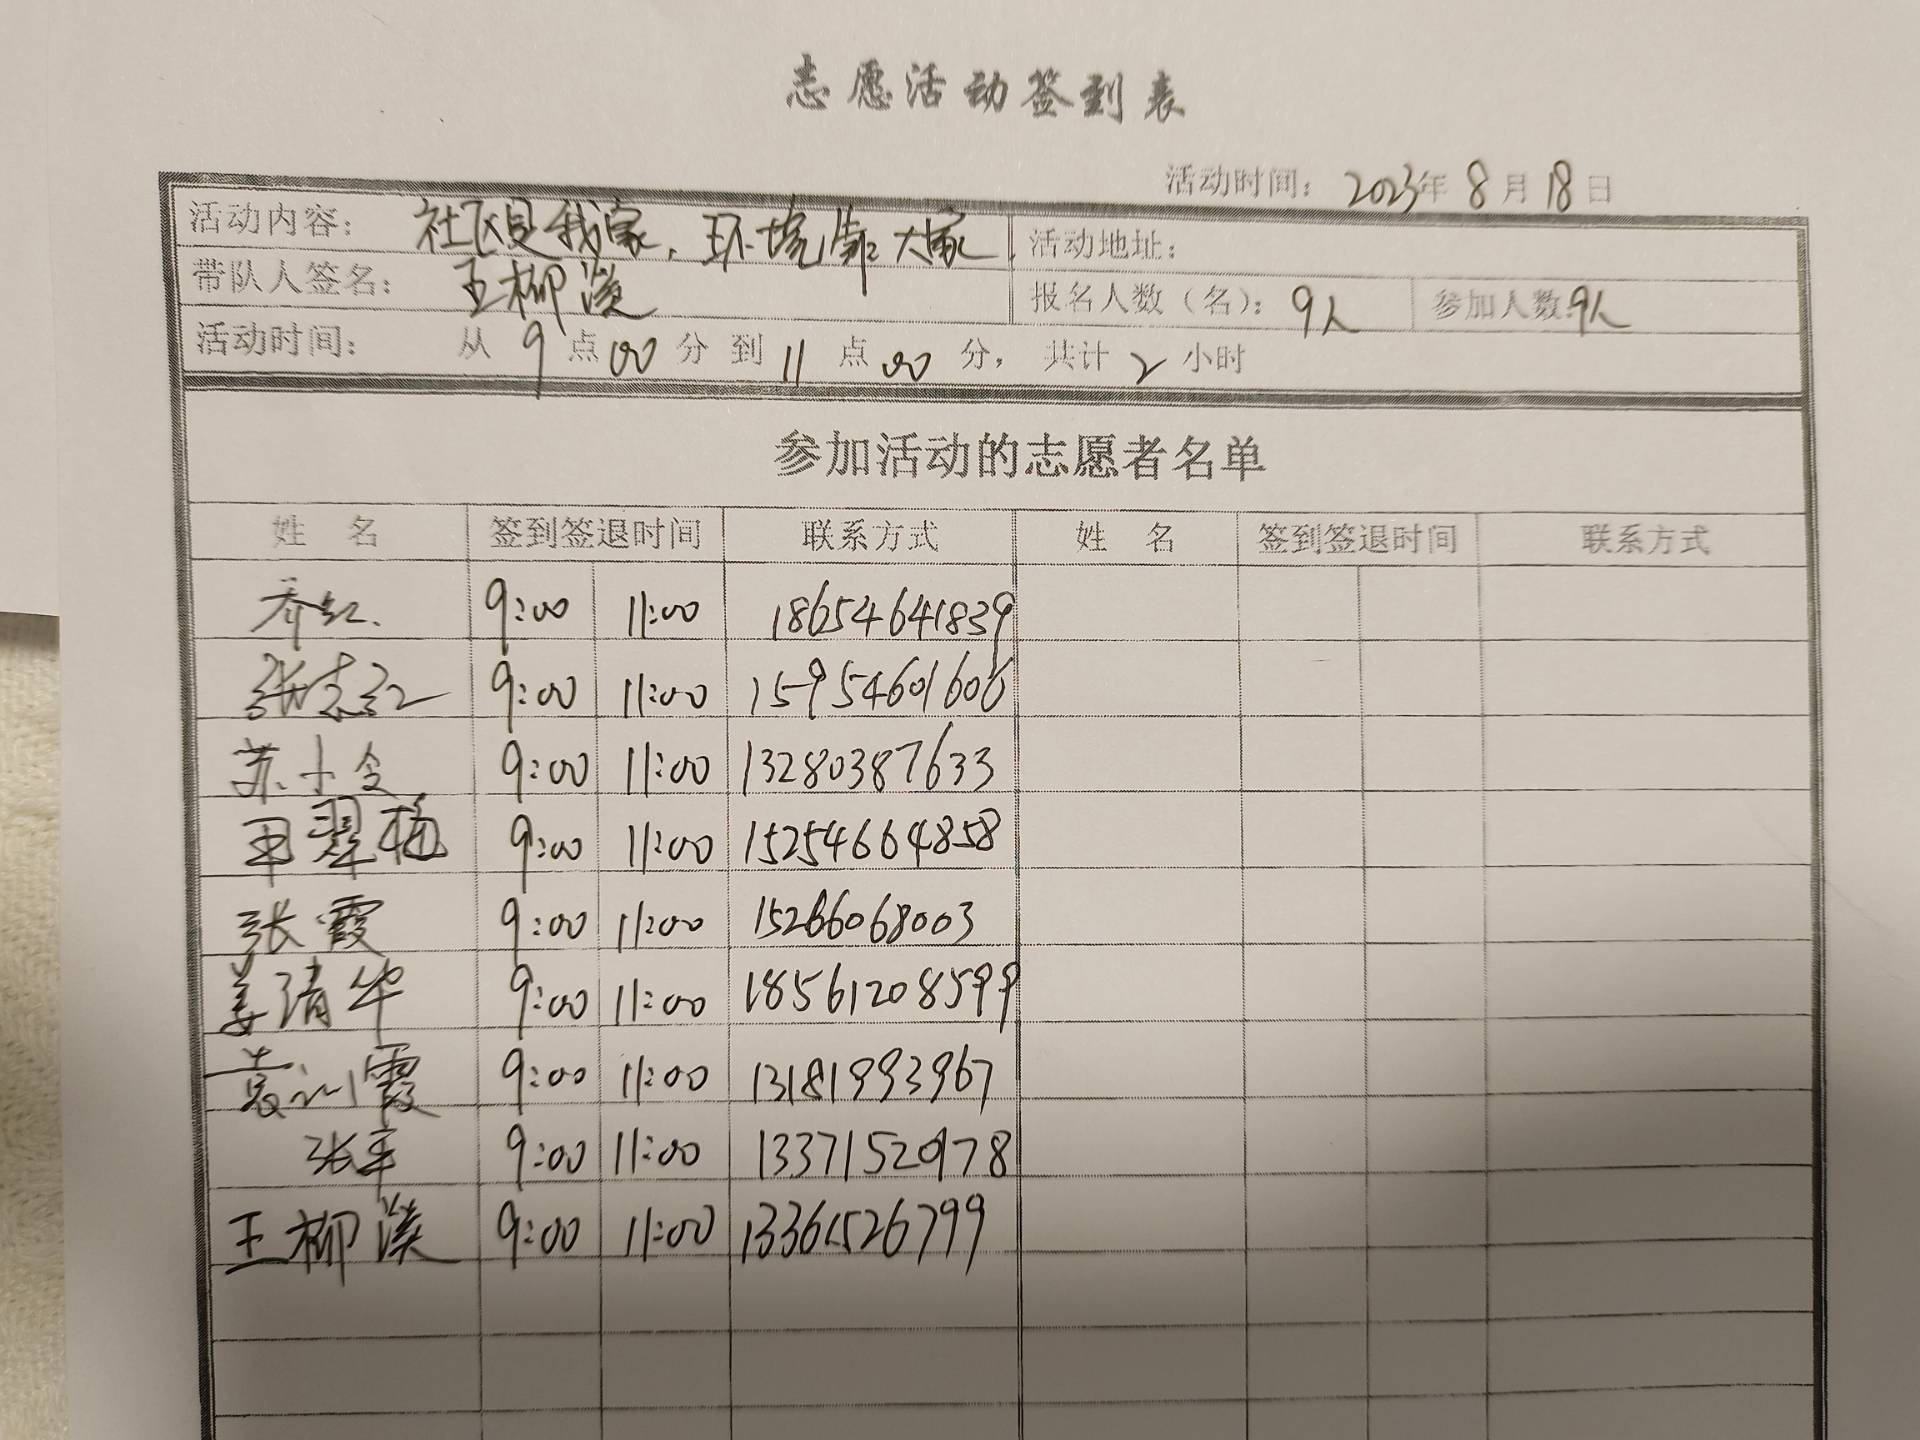 志愿活动签到表
活动时间：2023年8月18日
活动内容：社区是我家，环境靠大家 活动地址：
带队人签名：王柳溪 报名人数（名）：9人 参加人数：9人
活动时间：从9点00分到11点00分，共计2小时
参加活动的志愿者名单
姓 名 签到签退时间 联系方式 姓 名 签到签退时间 联系方式
乔红 9:00 11:00 18654641839
张志红 9:00 11:00 15954601606
苏小令 9:00 11:00 13280387633
田翠梅 9:00 11:00 15254664858
张霞 9:00 11:00 15266068003
姜清华 9:00 11:00 18561208599
袁训霞 9:00 11:00 13181993967
张军 9:00 11:00 13371520978
王柳溪 9:00 11:00 13361526799